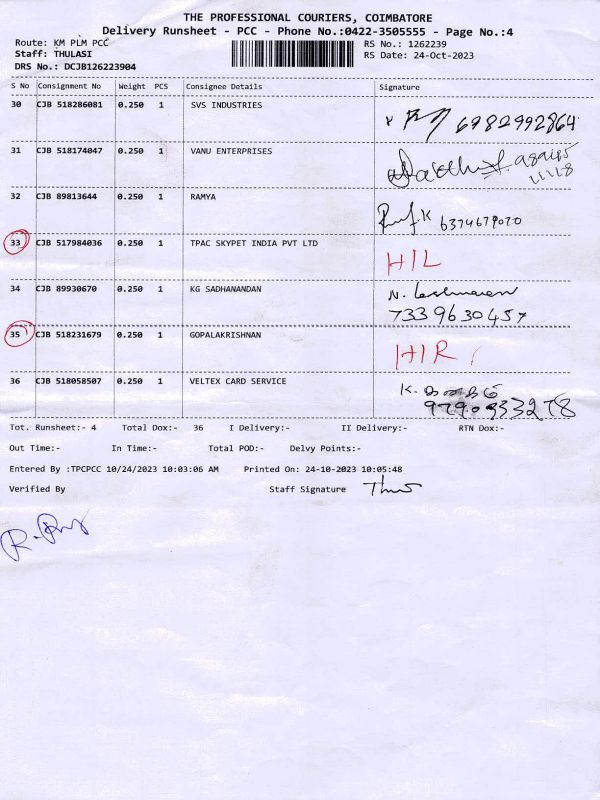 THE PROFESSIONAL COURIERS, COIMBATORE
Delivery Runsheet - PCC - Phone No.:0422-3505555 - Page No.:4
Route: KM PLM PCC RS No.: 1262239
Staff: THULASI RS Date: 24-Oct-2023
DRS No.: DCJB126223904
S No Consignment No Weight PCS Consignee Details Signature
30 CJB 518286081 0.250 1 SVS INDUSTRIES 6982992864
31 CJB 518174047 0.250 1 VANU ENTERPRISES
32 CJB 89813644 0.250 1 RAMYA
6374679070
33 CJB 517984036 0.250 1 TPAC SKYPET INDIA PVT LTD
HIL
34 CJB 89930670 0.250 1 KG SADHANANDAN
7339630457
35 CJB 518231679 0.250 1 GOPALAKRISHNAN
HIR
36 CJB 518058507 0.250 1 VELTEX CARD SERVICE
Tot. Runsheet:- 4 Total Dox:- 36 I Delivery:- II Delivery:- RTN Dox:-
Out Time:- In Time:- Total POD:- Delvy Points:-
Entered By :TPCPCC 10/24/2023 10:03:06 AM Printed On: 24-10-2023 10:05:48
Verified By Staff Signature